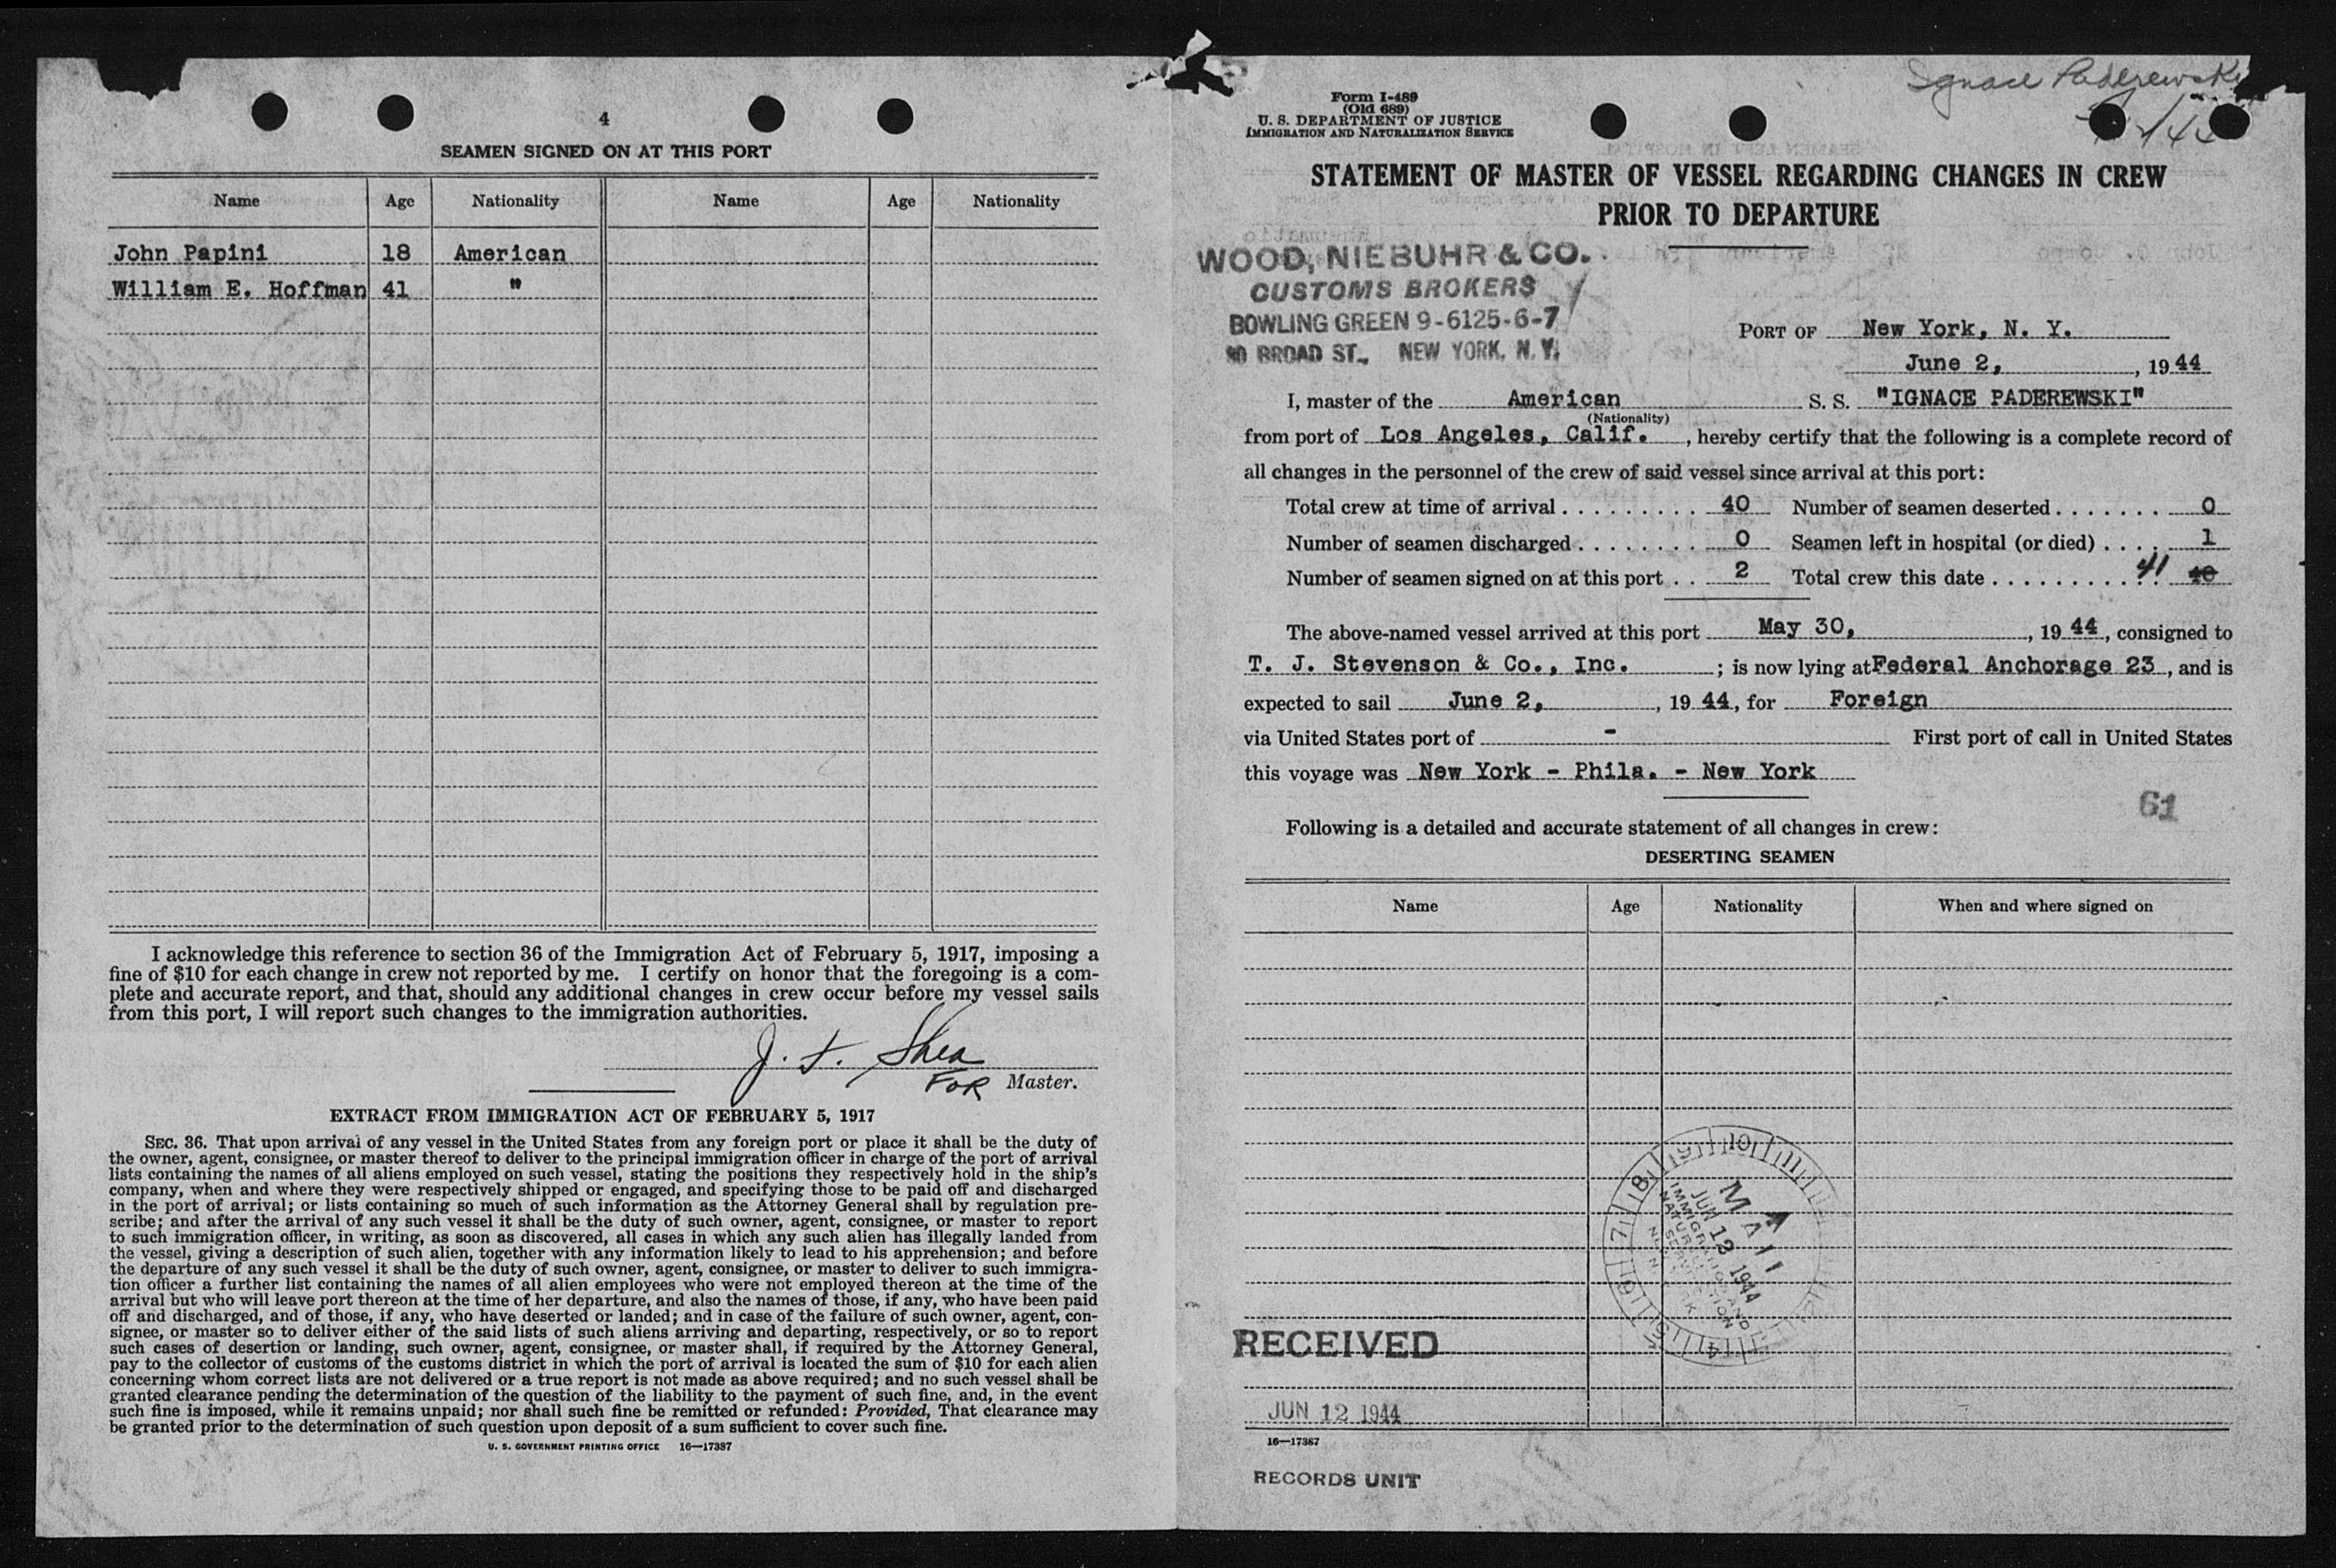 4
SEAMEN SIGNED ON AT THIS PORT
Name Age Nationality Name Age Nationality
John Papini 18 American
William E. Hoffman 41 "
I acknowledge this reference to section 36 of the Immigration Act of February 5, 1917, imposing a
fine of $10 for each change in crew not reported by me. I certify on honor that the foregoing is a com-
plete and accurate report, and that, should any additional changes in crew occur before my vessel sails
from this port, I will report such changes to the immigration authorities.
J. F. Shea
FOR Master.
EXTRACT FROM IMMIGRATION ACT OF FEBRUARY 5, 1917
SEC. 36. That upon arrival of any vessel in the United States from any foreign port or place it shall be the duty of
the owner, agent, consignee, or master thereof to deliver to the principal immigration officer in charge of the port of arrival
lists containing the names of all aliens employed on such vessel, stating the positions they respectively hold in the ship's
company, when and where they were respectively shipped or engaged, and specifying those to be paid off and discharged
in the port of arrival; or lists containing so much of such information as the Attorney General shall by regulation pre-
scribe; and after the arrival of any such vessel it shall be the duty of such owner, agent, consignee, or master to report
to such immigration officer, in writing, as soon as discovered, all cases in which any such alien has illegally landed from
the vessel, giving a description of such alien, together with any information likely to lead to his apprehension; and before
the departure of any such vessel it shall be the duty of such owner, agent, consignee, or master to deliver to such immigra-
tion officer a further list containing the names of all alien employees who were not employed thereon at the time of the
arrival but who will leave port thereon at the time of her departure, and also the names of those, if any, who have been paid
off and discharged, and of those, if any, who have deserted or landed; and in case of the failure of such owner, agent, con-
signee, or master so to deliver either of the said lists of such aliens arriving and departing, respectively, or so to report
such cases of desertion or landing, such owner, agent, consignee, or master shall, if required by the Attorney General,
pay to the collector of customs of the customs district in which the port of arrival is located the sum of $10 for each alien
concerning whom correct lists are not delivered or a true report is not made as above required; and no such vessel shall be
granted clearance pending the determination of the question of the liability to the payment of such fine, and, in the event
such fine is imposed, while it remains unpaid; nor shall such fine be remitted or refunded: Provided, That clearance may
be granted prior to the determination of such question upon deposit of a sum sufficient to cover such fine.
U. S. GOVERNMENT PRINTING OFFICE 16—17387
Ignace Paderewski
Form I-489
(Old 689)
U. S. DEPARTMENT OF JUSTICE
IMMIGRATION AND NATURALIZATION SERVICE
STATEMENT OF MASTER OF VESSEL REGARDING CHANGES IN CREW
PRIOR TO DEPARTURE
WOOD, NIEBUHR & CO.
CUSTOMS BROKERS
BOWLING GREEN 9-6125-6-7
80 BROAD ST., NEW YORK, N. Y.
PORT OF New York, N. Y.
June 2, , 19 44
I, master of the American S. S. "IGNACE PADEREWSKI"
(Nationality)
from port of Los Angeles, Calif. , hereby certify that the following is a complete record of
all changes in the personnel of the crew of said vessel since arrival at this port:
Total crew at time of arrival . . . . . . . . . 40 Number of seamen deserted . . . . . . . 0
Number of seamen discharged . . . . . . . . 0 Seamen left in hospital (or died) . . . . 1
Number of seamen signed on at this port . . 2 Total crew this date . . . . . . . . . . 41 40
The above-named vessel arrived at this port May 30, , 19 44 , consigned to
T. J. Stevenson & Co., Inc. ; is now lying at Federal Anchorage 23 , and is
expected to sail June 2, , 19 44, for Foreign
via United States port of - First port of call in United States
this voyage was New York - Phila. - New York
61
Following is a detailed and accurate statement of all changes in crew:
DESERTING SEAMEN
Name Age Nationality When and where signed on
MAIL
JUN 12 1944
IMMIGRATION AND
NATURALIZATION
SERVICE
RECEIVED
JUN 12 1944
16—17387
RECORDS UNIT